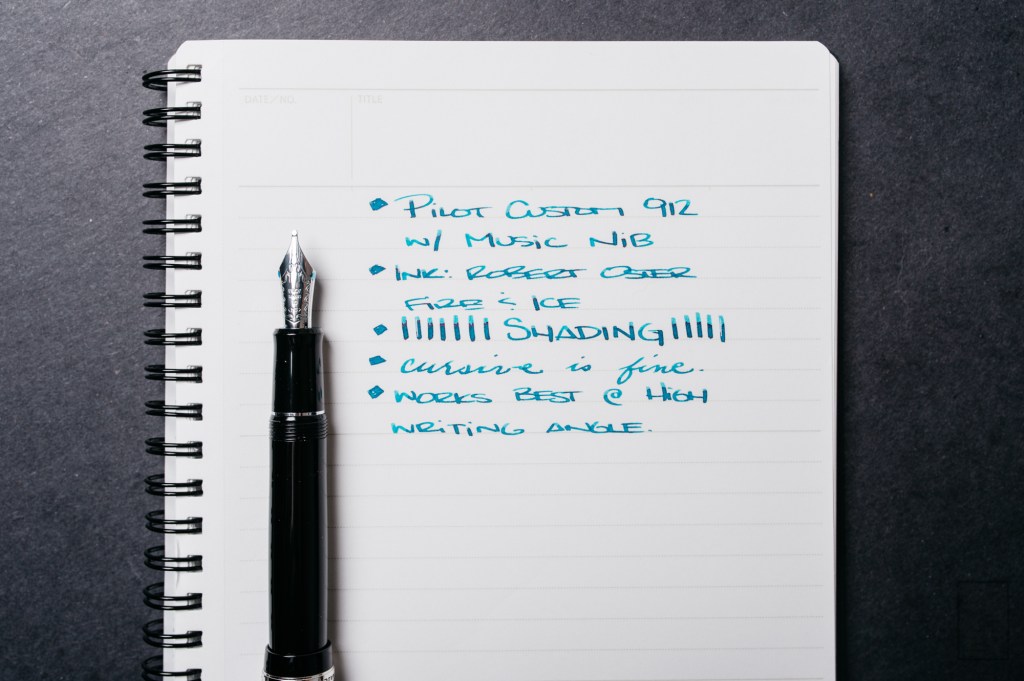 DATE/NO. TITLE
◆ PILOT CUSTOM 912
W/ MUSIC NIB
◆ INK: ROBERT OSTER
FIRE & ICE
◆ ||||||| SHADING |||||
◆ cursive is fine.
◆ WORKS BEST @ HIGH
WRITING ANGLE.